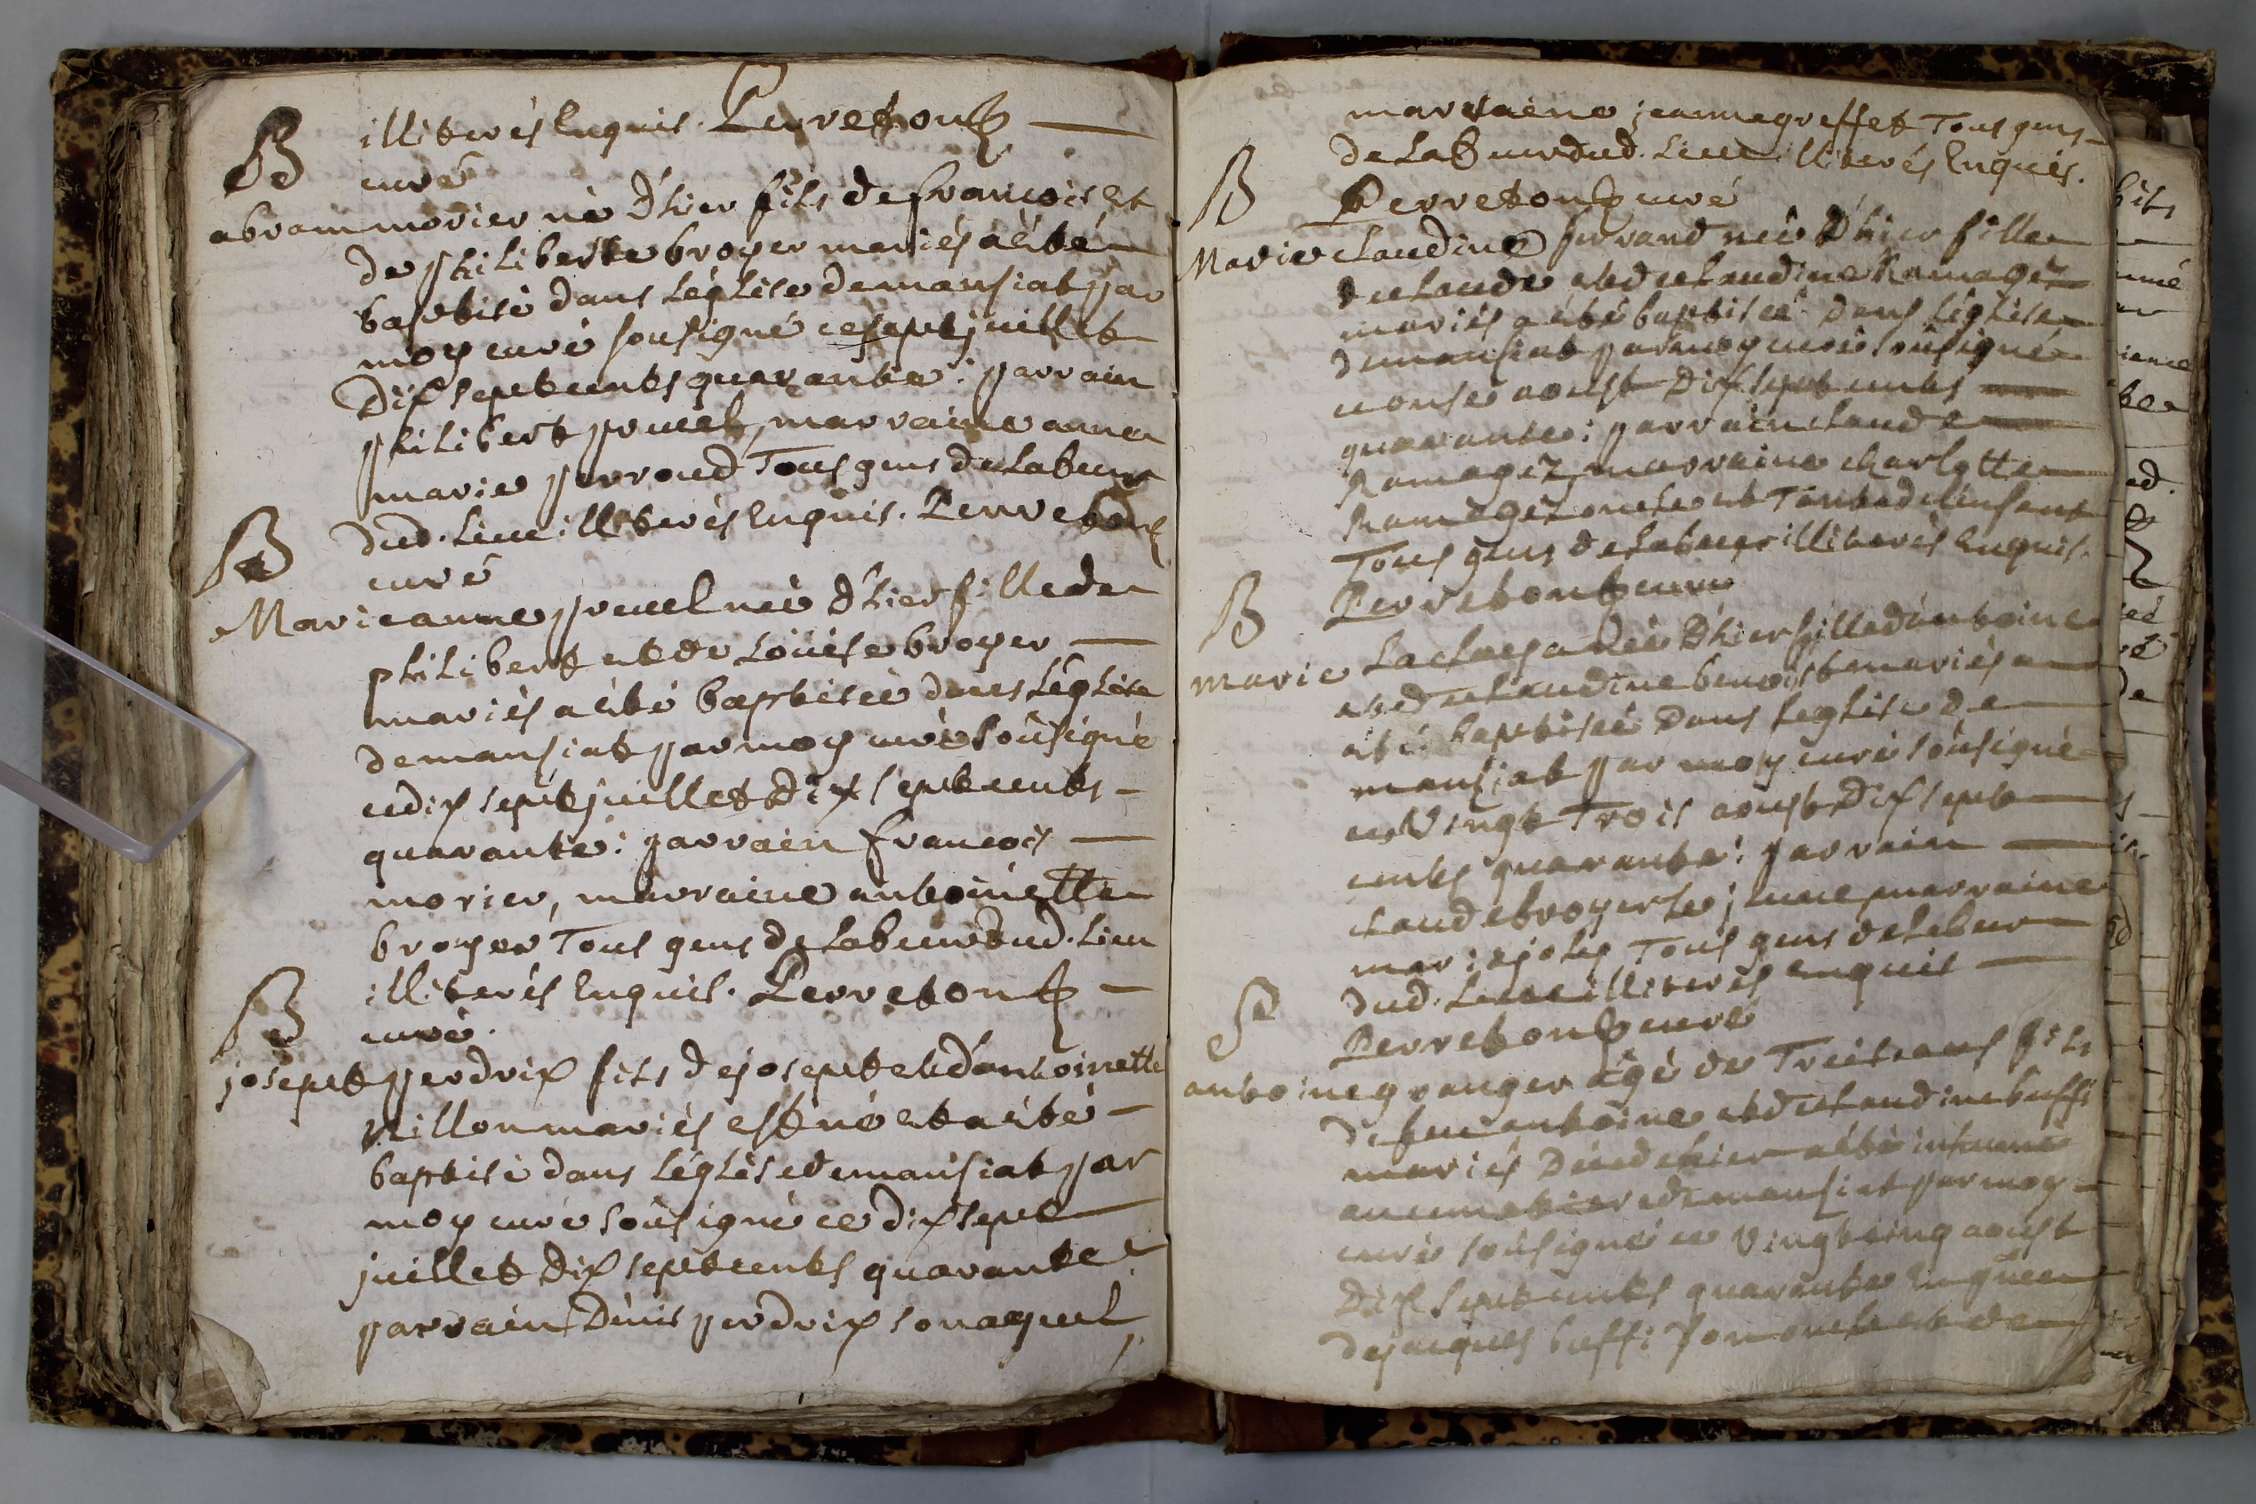 illiterés Enquis. Perretont
curé
B
abram morier né d'hier fils de francois Et
de philiberte broyer mariés a été
baptisé dans L'églize de mansiat par
moy curé sousigné ce sept juillet
Dix sept cents quarante : parrain
philibert pruuel, marraine anne
marie perroud Tous gens de labeur
dud. Lieu illiterés Enquis. Perretont
curé
B
Marieanne pruuel née d'hier fille de
philibert et de Loüise broyer
mariés a été baptisée dans L'églize
de mansiat par moy curé soûsigné
ce dix sept juillet Dix sept cents
quarante : parrain francois
morier, marraine antoinette
broyer Tous gens de labeur dud. Lieu
illiterés Enquis. Perretont
curé.
B
josept perdrix fils de josept et d'antoinette
Nillon mariés est né et a été
baptisé dans L'églize de mansiat par
moy curé soûsigné ce dix sept
juillet dix sept cents quarante
parrain Denis perdrix son ayeul
marraine jeanne greffet Tous gens
de Labeur dud. Lieu illiterés Enquis.
Perretont curé
B
Marie claudine perraud née D'hier fille
de claude et de claudine Ramagez
mariés a été baptisée dans L'églize
de mansiat par moy curé soûsigné
ce onse aoust Dix sept cents
quarante : parrain claude
Ramagez, marraine charlotte
Ramagez oncle et Tante de l'enfant
Tous gens de labeur illiterés Enquis.
Perretont curé
B
marie née D'hier fille d'antoine
et de claudine benoist mariés a
été baptisée dans l'eglize de
mansiat par moy curé soûsigné
ce Vingt Trois aoust Dix sept
cents quarante : parrain
claude broyer le jeune marraine
marie joly Tous gens de labeur
dud. Lieu illiterés Enquis
Perretont curé
S
antoine granger âgé de Treize ans fils
de feu antoine et de claudine buffi
mariés Décédé hier a été inhumé
au cimetiere de mansiat par moy
curé soûsigné ce Vingt cinq aoust
Dix sept cents quarante En
de jacques buffi son oncle et de